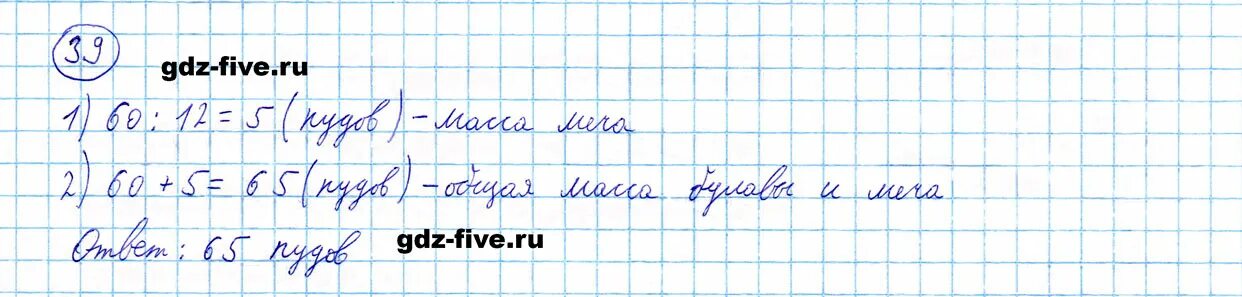 39
gdz-five.ru
1) 60 : 12 = 5 (пудов) – масса меча
2) 60 + 5 = 65 (пудов) – общая масса булавы и меча
Ответ: 65 пудов
gdz-five.ru